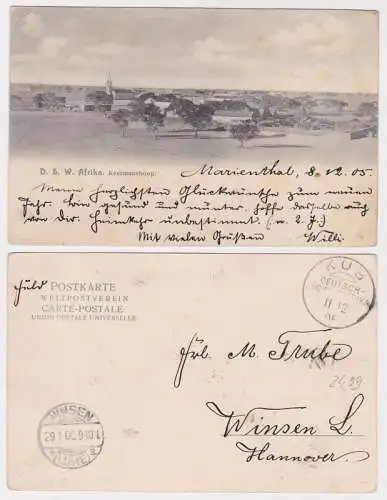 D. S. W. Afrika. Keetmanshoop.
Marienthal, 8. 12. 05.
Meine herzlichsten Glückwünsche zum neuen
Jahr. bin gesund und munter, hoffe dasselbe auch
von dir. Heimkehr unbestimmt (n. 2. J.)
Mit vielen Grüßen Willi
KUB
DEUTSCH-
11 12
POSTKARTE
WELTPOSTVEREIN
CARTE-POSTALE
UNION POSTALE UNIVERSELLE
Frl. M. Trube
2429
Winsen L.
Hannover.
WINSEN
29.1.06.9-10